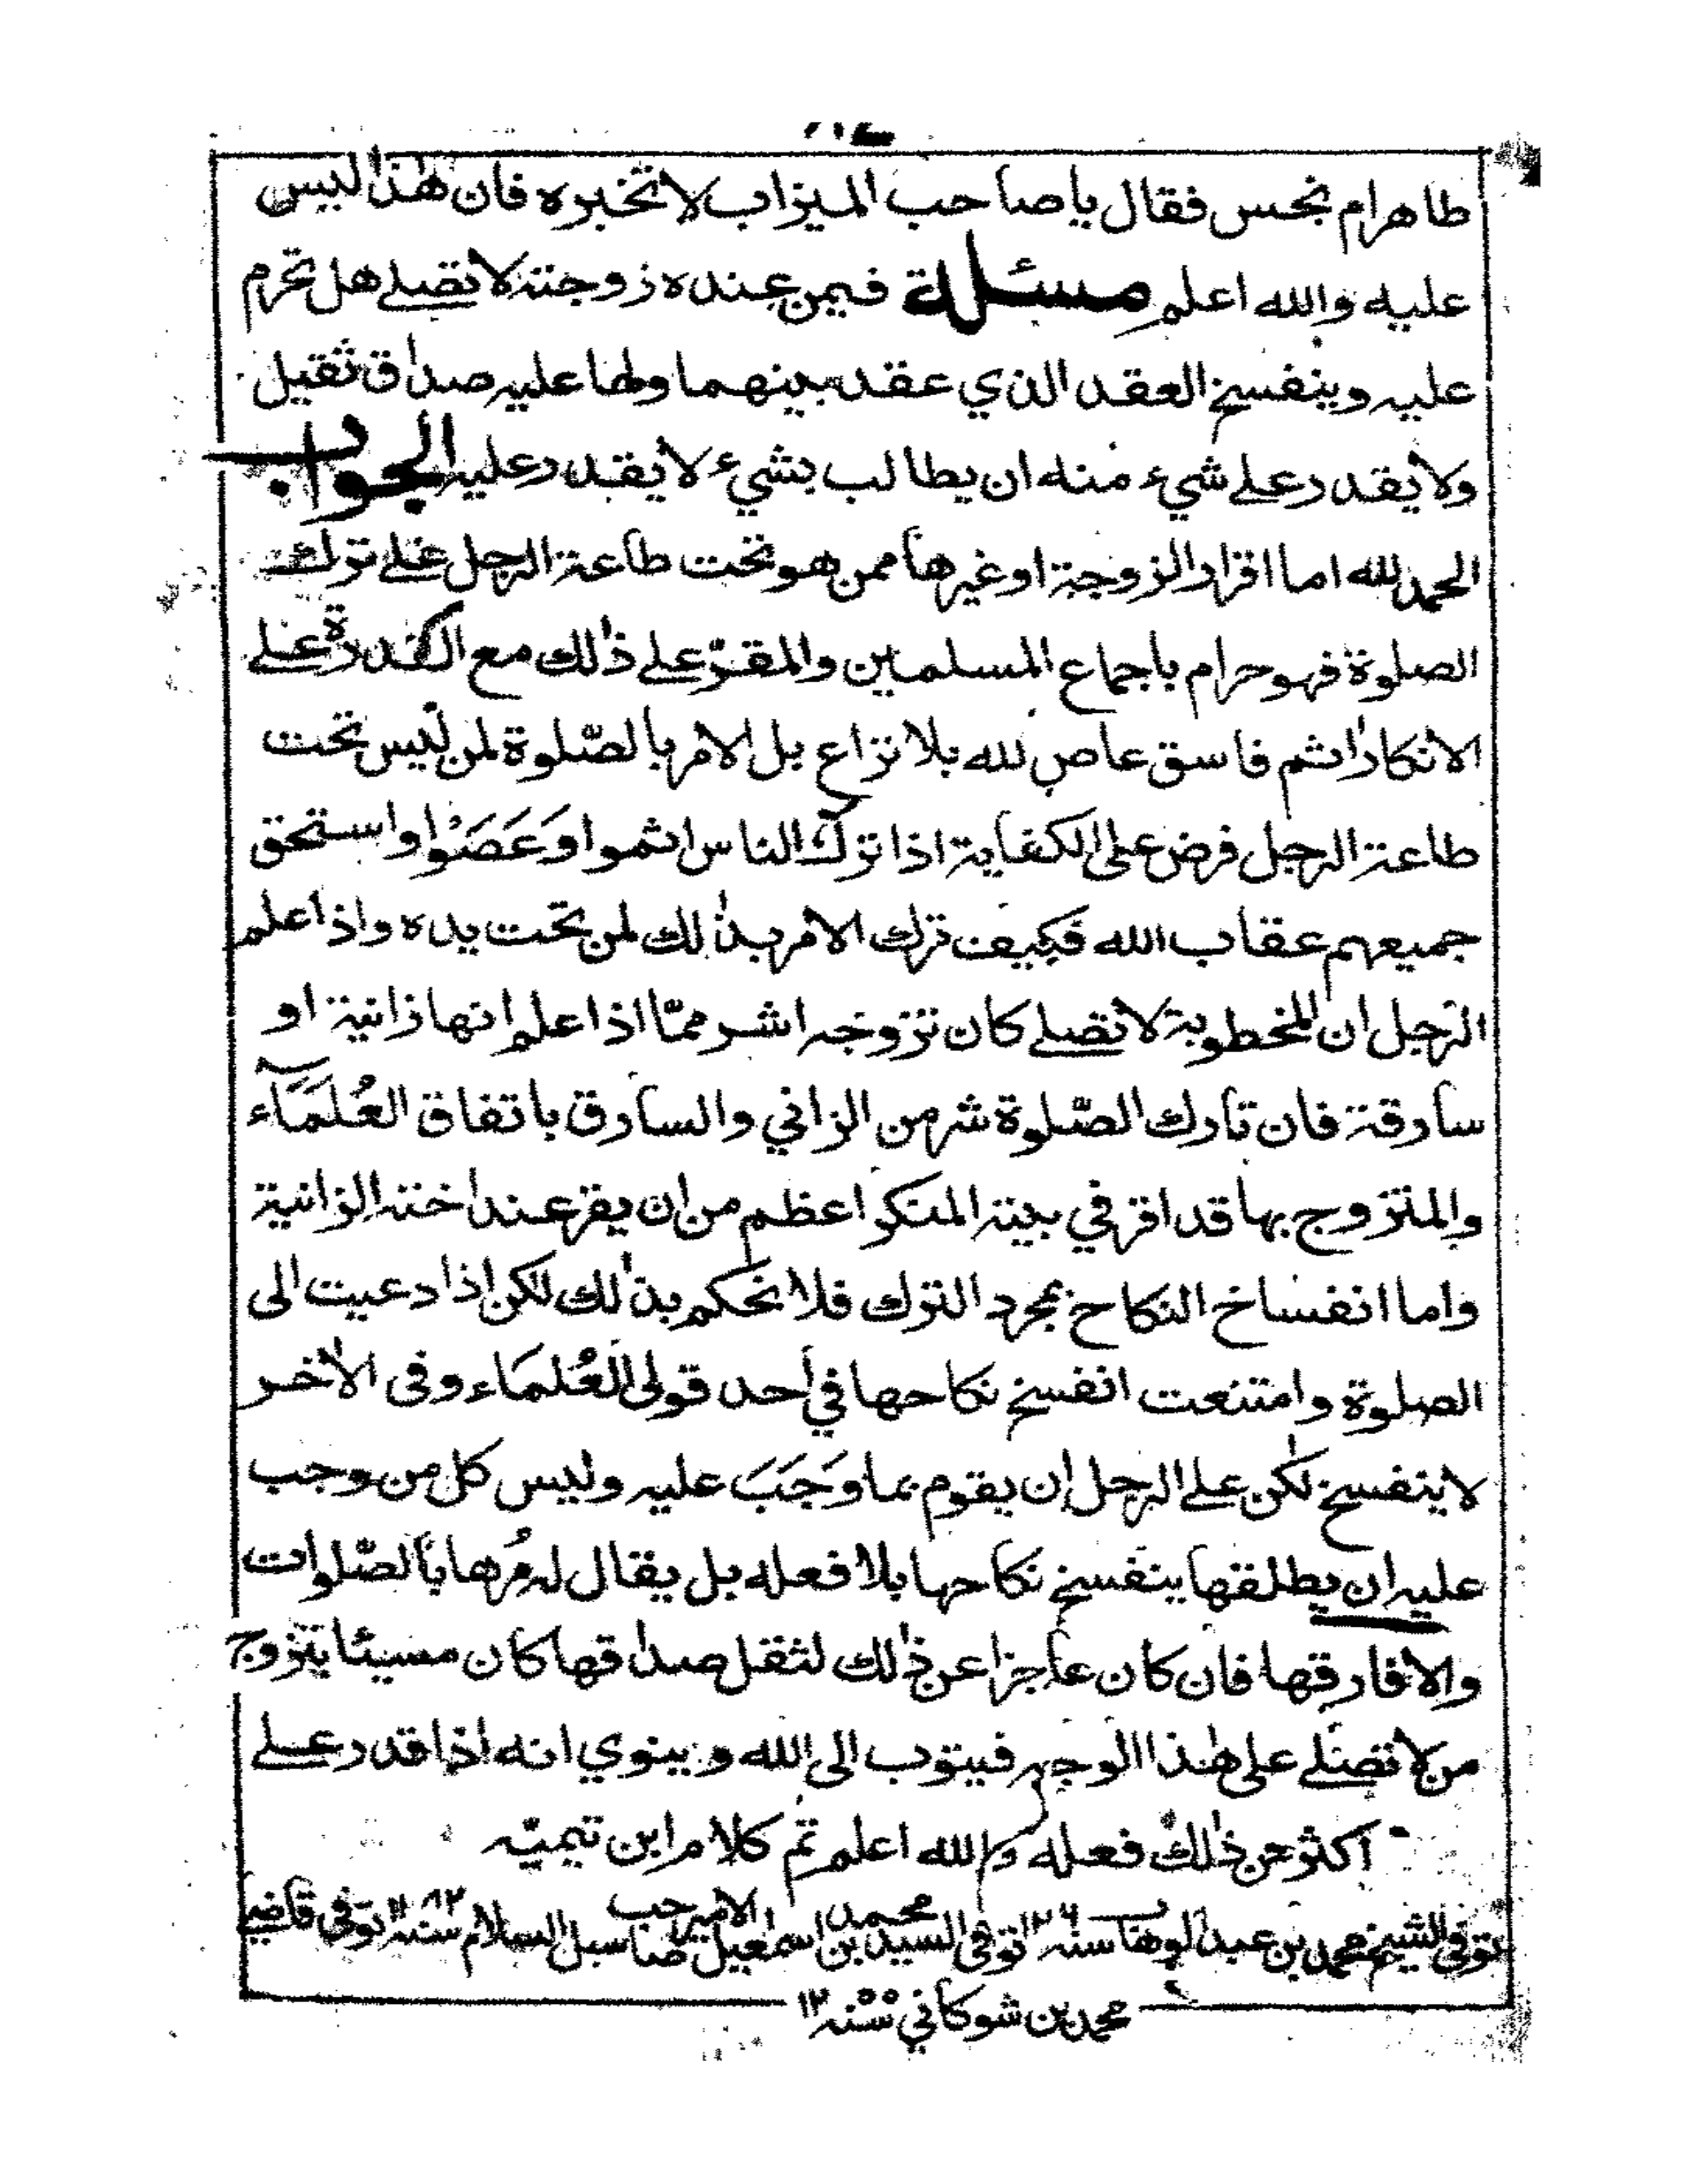 طاهرام نجس فقال ياصاحب الميزاب لاتخبره فان هٰذا ليس
عليه والله اعلم مسئلة فيمن عنده زوجته لاتصلے هل تحرم
عليه وينفسخ العقد الذي عقد بينهما ولها عليه صداق ثقيل
ولايقدر علے شيء منه ان يطالب بشيء لايقدر عليه الجواب
الحمد لله اما اقرار الزوجة اوغيرها ممن هو تحت طاعة الرجل علے ترك
الصلوة فهو حرام باجماع المسلمين والمقرّ علے ذٰلك مع القدرة علے
الانكار اثم فاسق عاص لله بلا نزاع بل الامر بالصّلوة لمن ليس تحت
طاعة الرجل فرض على الكفاية اذا ترك الناس اثموا وَعَصَوْا واستحق
جميعهم عقاب الله فكيف ترك الامر بذٰلك لمن تحت يده واذا علم
الرجل ان المخطوبة لاتصلے كان تزوجه اشر ممّا اذا علم انها زانية او
سارقة فان تارك الصّلوة شر من الزاني والسارق باتفاق العُلَمَاء
والمتزوج بها قد اقر في بيته المنكر اعظم من ان يقر عند اخته الزانية
واما انفساخ النكاح بمجرد الترك فلا نحكم بذٰلك لكن اذا دعيت الى
الصلوة وامتنعت انفسخ نكاحها في احد قولى العُلمَاء وفى الاخر
لاينفسخ لكن علے الرجل ان يقوم بما وَجَبَ عليه وليس كل من وجب
عليه ان يطلقها ينفسخ نكاحها بلا فعله بل يقال له مُرها بالصّلوات
والا فارقها فان كان عاجزا عن ذٰلك لثقل صداقها كان مسيئا يتزوج
من لاتصلے على هٰذا الوجه فيتوب الى الله وينوي انه اذا قدر علے
اكثر من ذٰلك فعله والله اعلم تم كلام ابن تيميّه
توفى الشيخ محمد بن عبد الوهاب سنه ١٢٠٦ توفى السيد محمد بن اسمٰعيل الامير صاحب سبل السلام سنه ١١٨٢ توفى قاضے
محمد بن شوكاني سنه ١٢٥٥